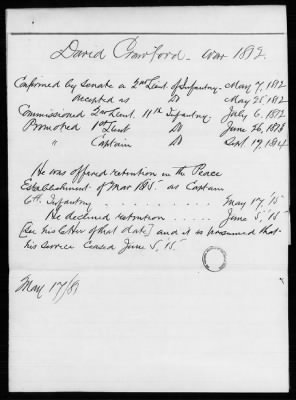 David Crawford - War 1812.
Confirmed by Senate a 2nd Lieut of Infantry - May 7, 1812
accepted as Do May 25, 1812
Commissioned 2nd Lieut. 11th Infantry July 6, 1812
Promoted 1st Lieut Do June 26, 1813
" Captain Do Sept 19, 1814
He was offered retention in the Peace
Establishment of Mar 1815 as Captain
6th Infantry . . . . . . . . May 17, 15
He declined retention . . . . . June 5, 15
[See his letter of that date] and it is presumed that
his service ceased June 5, 15.
May 17/81